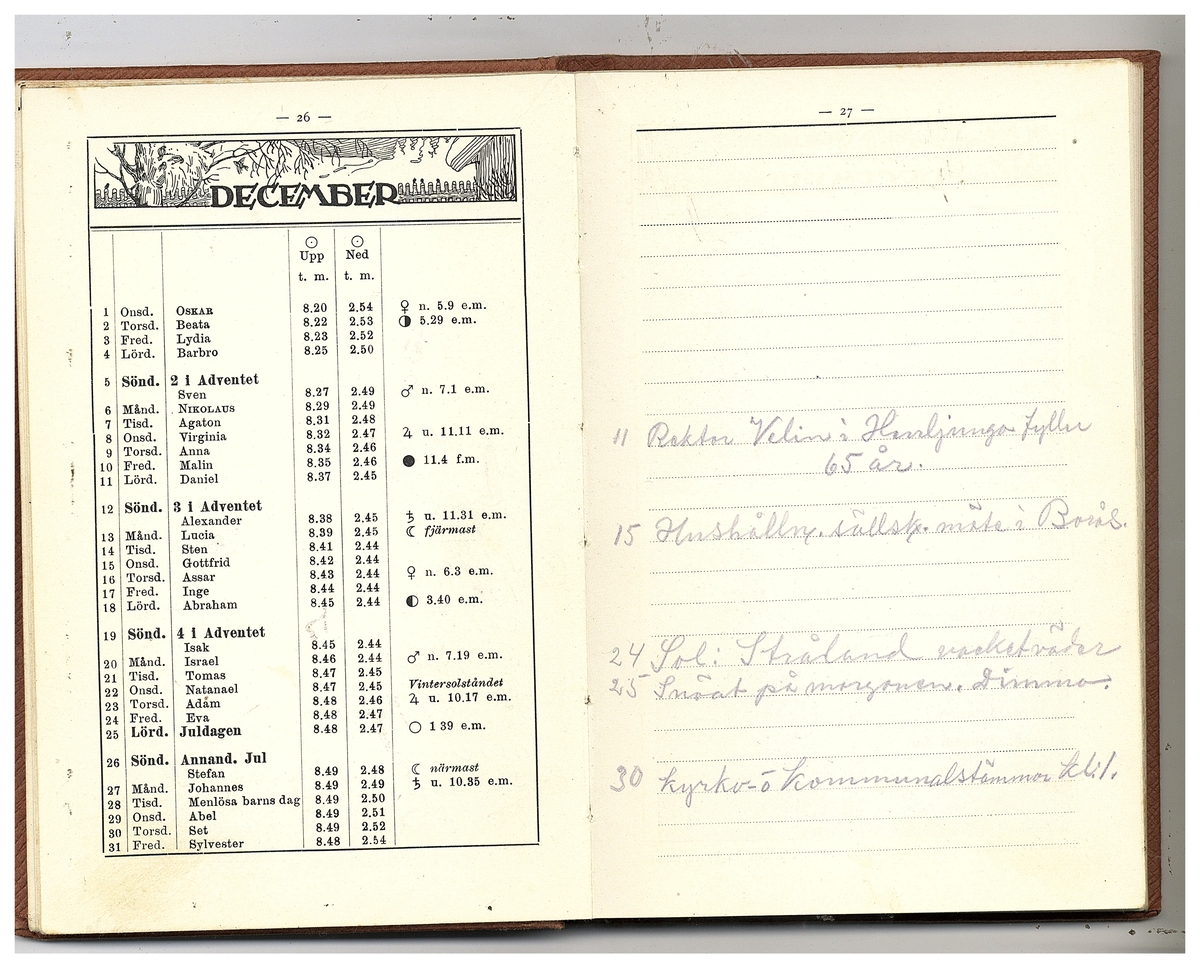 — 26 —
DECEMBER
☉ ☉
Upp Ned
t. m. t. m.
1 Onsd. OSKAR 8.20 2.54 ♀ n. 5.9 e.m.
2 Torsd. Beata 8.22 2.53 ◑ 5.29 e.m.
3 Fred. Lydia 8.23 2.52
4 Lörd. Barbro 8.25 2.50
5 Sönd. 2 i Adventet
Sven 8.27 2.49 ♂ n. 7.1 e.m.
6 Månd. NIKOLAUS 8.29 2.49
7 Tisd. Agaton 8.31 2.48
8 Onsd. Virginia 8.32 2.47 ♃ u. 11.11 e.m.
9 Torsd. Anna 8.34 2.46
10 Fred. Malin 8.35 2.46 ● 11.4 f.m.
11 Lörd. Daniel 8.37 2.45
12 Sönd. 3 i Adventet
Alexander 8.38 2.45 ♄ u. 11.31 e.m.
13 Månd. Lucia 8.39 2.45 ☾ fjärmast
14 Tisd. Sten 8.41 2.44
15 Onsd. Gottfrid 8.42 2.44
16 Torsd. Assar 8.43 2.44 ♀ n. 6.3 e.m.
17 Fred. Inge 8.44 2.44
18 Lörd. Abraham 8.45 2.44 ◐ 3.40 e.m.
19 Sönd. 4 i Adventet
Isak 8.45 2.44
20 Månd. Israel 8.46 2.44 ♂ n. 7.19 e.m.
21 Tisd. Tomas 8.47 2.45
22 Onsd. Natanael 8.47 2.45 Vintersolståndet
23 Torsd. Adam 8.48 2.46 ♃ u. 10.17 e.m.
24 Fred. Eva 8.48 2.47
25 Lörd. Juldagen 8.48 2.47 ○ 1 39 e.m.
26 Sönd. Annand. Jul
Stefan 8.49 2.48 ☾ närmast
27 Månd. Johannes 8.49 2.49 ♄ u. 10.35 e.m.
28 Tisd. Menlösa barns dag 8.49 2.50
29 Onsd. Abel 8.49 2.51
30 Torsd. Set 8.49 2.52
31 Fred. Sylvester 8.48 2.54
— 27 —
11 Rektor Velin i Herrljunga fyller
65 år.
15 Hushålln. sällsk. möte i Borås.
24 Sol: Stråland vacketväder
25 Snöat på morgonen. Dimma.
30 kyrko- o kommunalstämmor